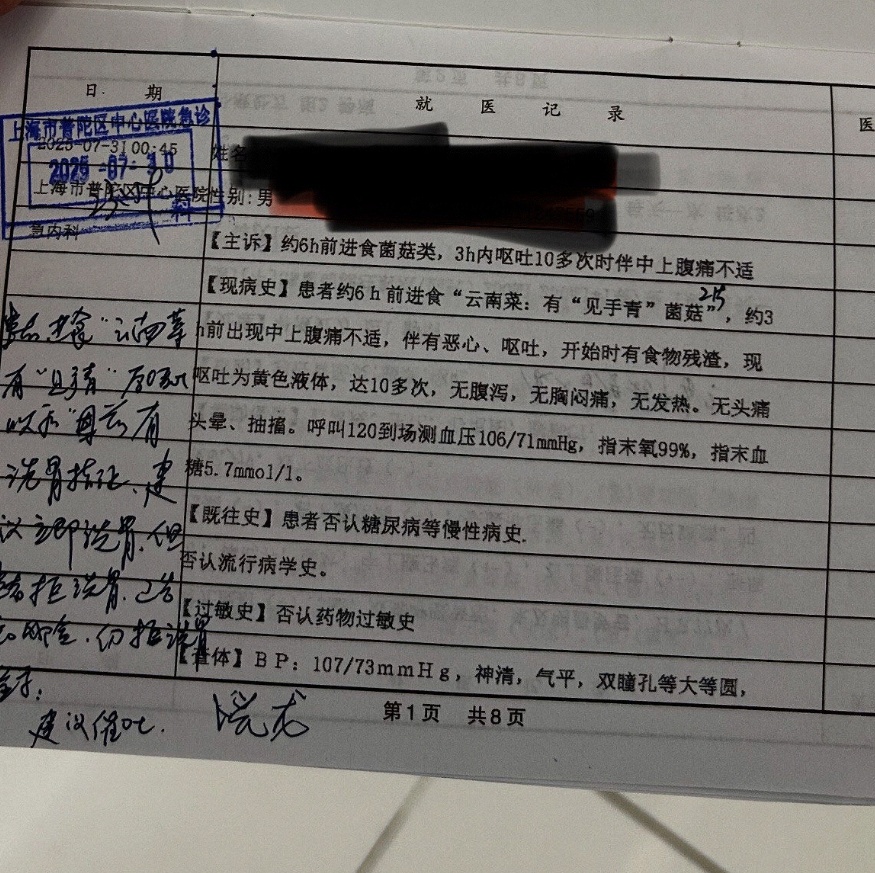 日 期
就 医 记 录
医
上海市普陀区中心医院急诊
2025-07-31 00:45
姓名
2025-07-30
上海市普陀区中心医院
性别: 男
科
急内科
【主诉】约6h前进食菌菇类，3h内呕吐10多次时伴中上腹痛不适
【现病史】患者约6h前进食“云南菜：有“见手青”菌菇”，约3
h前出现中上腹痛不适，伴有恶心、呕吐，开始时有食物残渣，现
呕吐为黄色液体，达10多次，无腹泻，无胸闷痛，无发热。无头痛
头晕、抽搐。呼叫120到场测血压106/71mmHg，指末氧99%，指末血
糖5.7mmol/l。
【既往史】患者否认糖尿病等慢性病史.
否认流行病学史。
【过敏史】否认药物过敏史
【查体】BP：107/73mmHg，神清，气平，双瞳孔等大等圆，
云南菜
有
有
洗胃指征、建
议立即洗胃.但
拒洗胃.
仍拒洗胃
签字:
建议催吐.
第1页 共8页